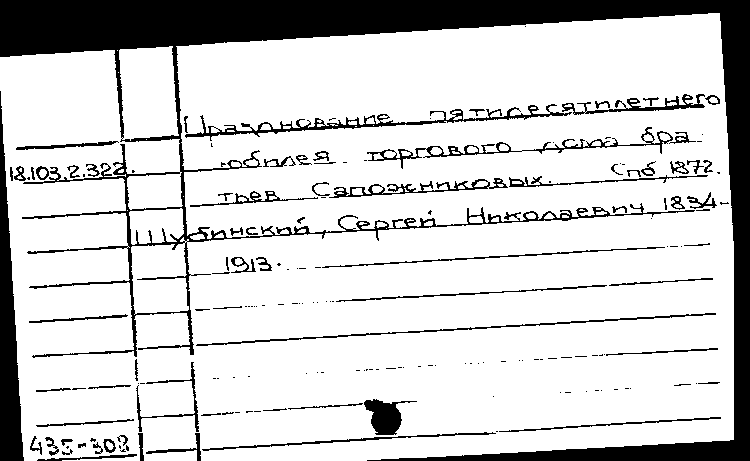 Празднование пятидесятилетнего
18.103.2.322. юбилея торгового дома бра
тьев Сапожниковых. Спб, 1872.
Шубинский, Сергей Николаевич, 1834-
1913.
435-308